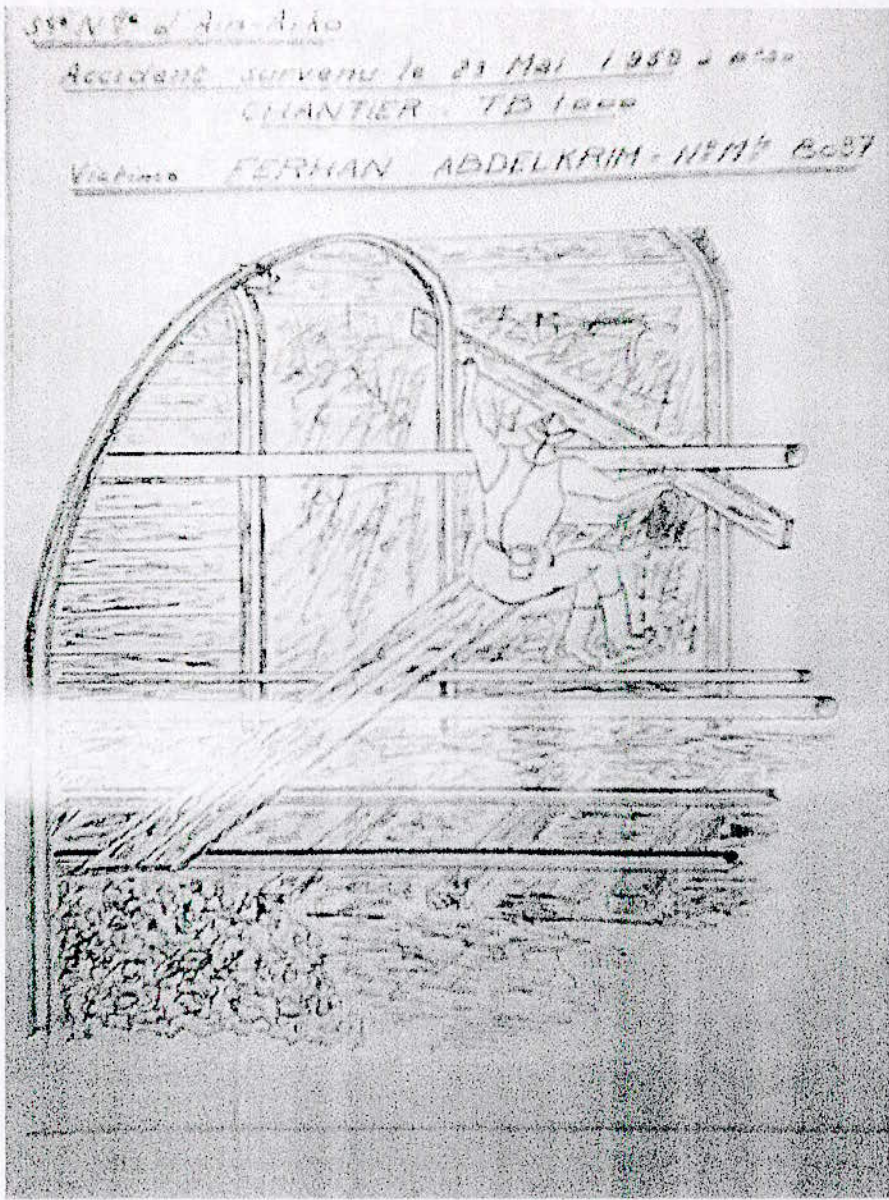 Sté N lle d'Ain-Arko
Accident survenu le 23 Mai 1958 à
CHANTIER : TB 1000
Victime FERHAN ABDELKRIM - N° Mle 8087